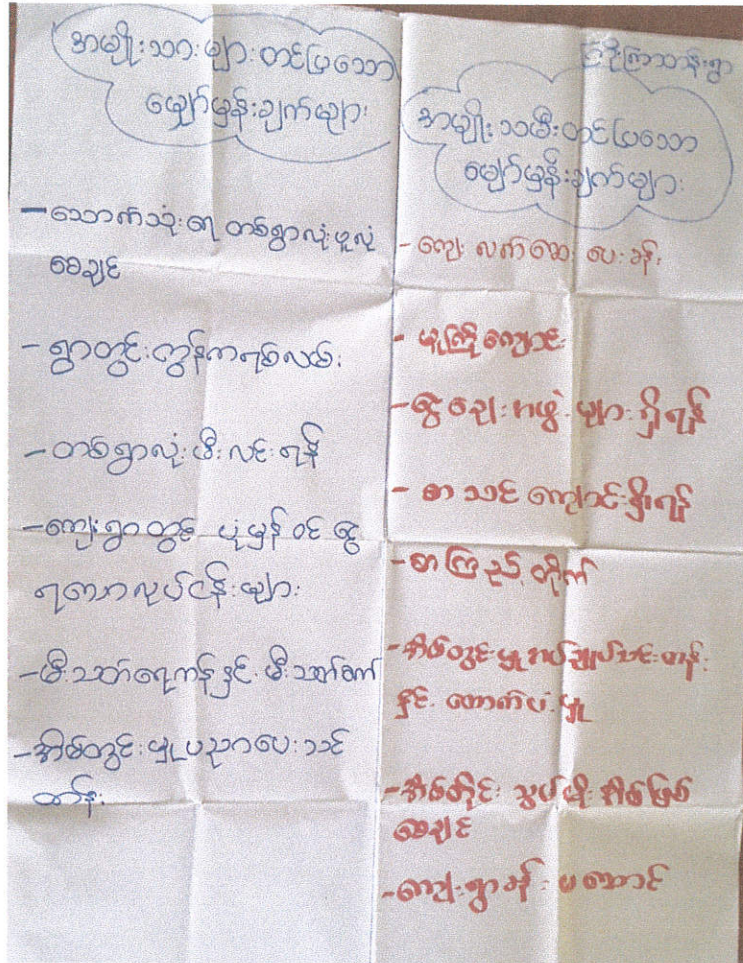 အမျိုးသားများတင်ပြသော
မျှော်မှန်းချက်များ
- သောက်သုံးရေ တစ်ရွာလုံးဖူလုံ
စေချင်
- ရွာတွင်းကွန်ကရစ်လမ်း
- တစ်ရွာလုံး မီးလင်းရန်
- ကျေးရွာတွင် ပုံမှန်ဝင်ငွေ
ရသောလုပ်ငန်းများ
- မီးသတ်ရေကန်နှင့် မီးသတ်စက်
- အိမ်တွင်းမှုပညာပေးသင်
တန်း
အမျိုးသမီးတင်ပြသော
မျှော်မှန်းချက်များ
- ကျေးလက်ဆေးပေးခန်း
- မူကြိုကျောင်း
- ငွေချေးအဖွဲ့များရှိရန်
- စာသင်ကျောင်းရှိရန်
- စာကြည့်တိုက်
- အိမ်တွင်းမှုအပ်ချုပ်သင်တန်း
နှင့် ထောက်ပံ့မှု
- အိမ်တိုင်း သွပ်မိုးအိမ်ဖြစ်
စေချင်
- ကျေးရွာခန်းမဆောင်